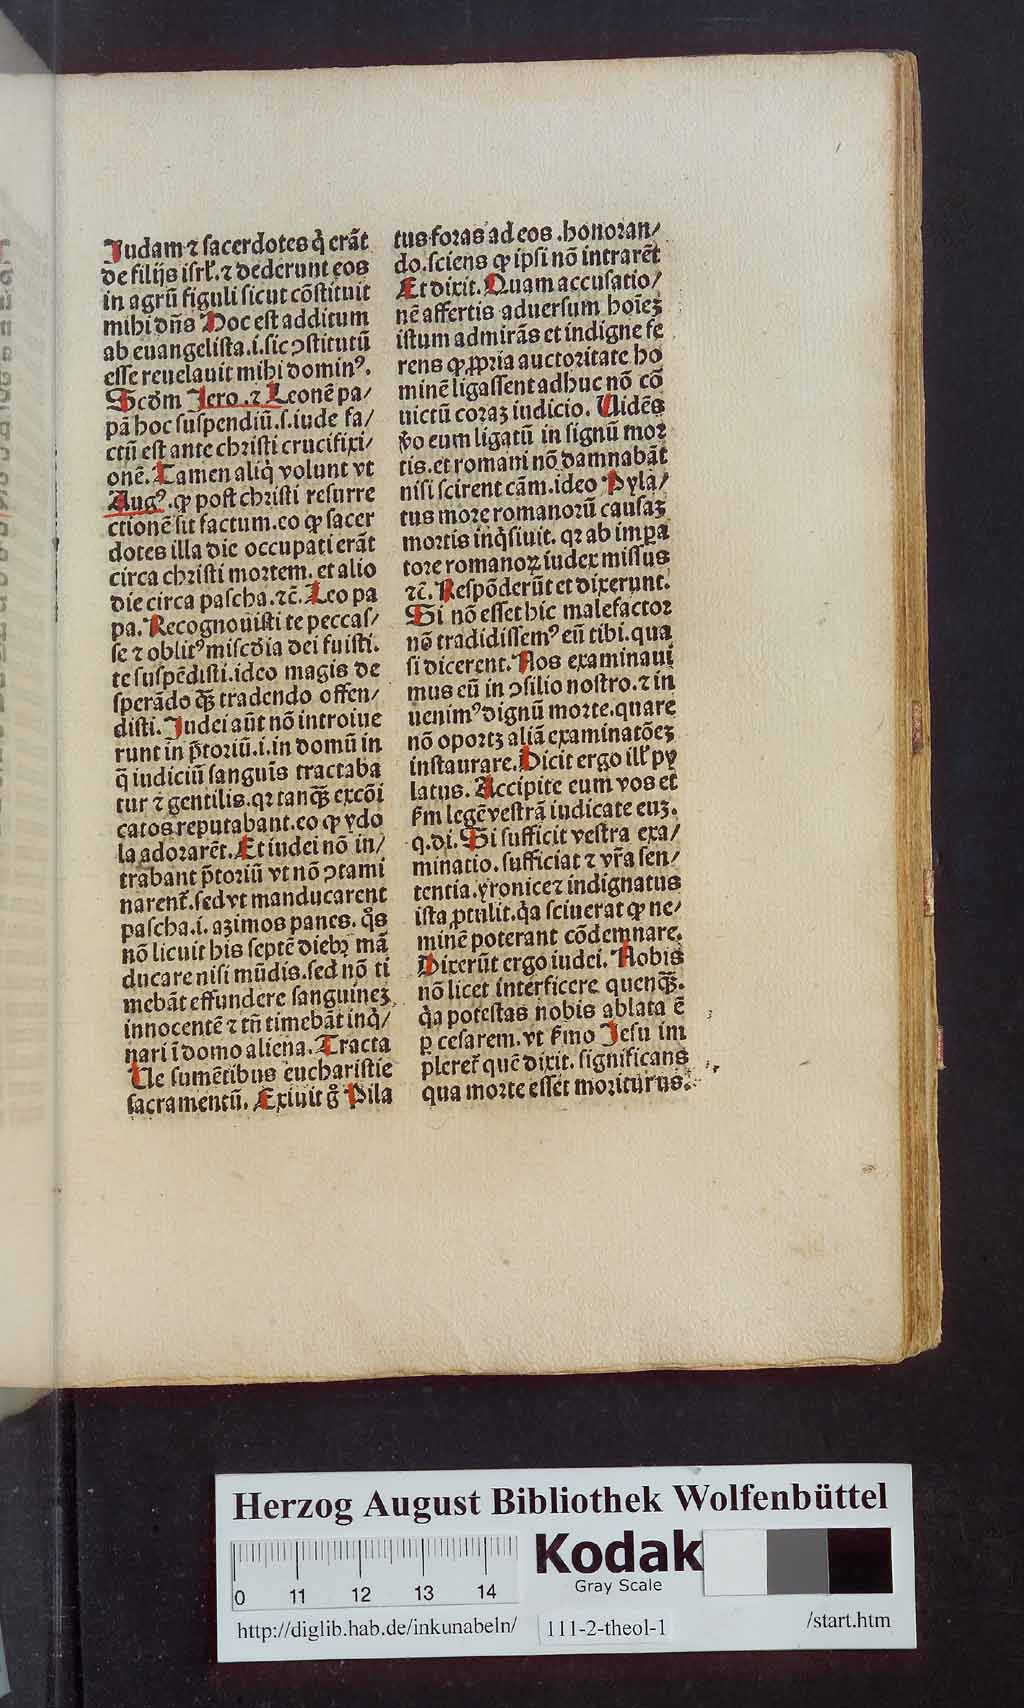 Judam ⁊ sacerdotes q̇ erãt
de filijs isrl̃. ⁊ dederunt eos
in agrũ figuli sicut cõstituit
mihi dñs Hoc est additum
ab euangelista .i. sic ↄstitutũ
esse reuelauit mihi dominꝰ.
Scd̃m Jero . ⁊ Leonẽ pa/
pã hoc suspendiũ .s. iude fa/
ctũ est ante christi crucifixi/
onẽ. Tamen aliq̇ volunt vt
Augꝰ. ꝙ post christi resurre
ctionẽ sit factum. eo ꝙ sacer
dotes illa die occupati erãt
circa christi mortem. et alio
die circa pascha. ⁊c̃. Leo pa
pa. Recognouisti te peccas/
se ⁊ oblitꝰ misc̃dia dei fuisti.
te suspẽdisti. ideo magis de
sperãdo q̃ꝫ tradendo offen/
disti. Judei aũt nõ introiue
runt in p̃toriũ .i. in domũ in
q̃ iudiciũ sanguĩs tractaba
tur ⁊ gentilis. qꝛ tanq̃ꝫ excõi
catos reputabant. eo ꝙ ydo
la adorarẽt. Et iudei nõ in/
trabant p̃toriũ vt nõ ↄtami
narent̃. sed vt manducarent
pascha .i. azimos panes. q̊s
nõ licuit his septẽ diebꝫ mã
ducare nisi mũdis. sed nõ ti
mebãt effundere sanguineꝫ
innocentẽ ⁊ tñ timebãt inq̇/
nari ĩ domo aliena. Tracta
Ue sumẽtibus eucharistie
sacramentũ. Exiuit g̊ Pila
tus foras ad eos . honoran/
do. sciens ꝙ ipsi nõ intrarẽt
Et dixit. Quam accusatio/
nẽ affertis aduersum hoĩeꝫ
istum admirãs et indigne fe
rens ꝙ ꝓpria auctoritate ho
minẽ ligassent adhuc nõ cõ
uictũ coraꝫ iudicio. Uidẽs
v̊o eum ligatũ in signũ mor
tis. et romani nõ damnabãt
nisi scirent cãm. ideo Pyla/
tus more romanorũ causaꝫ
mortis inq̇siuit. qꝛ ab impa
tore romanoꝝ iudex missus
⁊c̃. Respõderũt et dixerunt.
Si nõ esset hic malefactor
nõ tradidissemꝰ eũ tibi. qua
si dicerent. Nos examinaui
mus eũ in ↄsilio nostro. ⁊ in
uenimꝰ dignũ morte. quare
nõ oportꝫ aliã examinatõeꝫ
instaurare. Dicit ergo ill̃ py
latus. Accipite eum vos et
ẜm legẽ vestrã iudicate euꝫ.
q.di. Si sufficit vestra exa/
minatio. sufficiat ⁊ vr̃a sen/
tentia. yronice ⁊ indignatus
ista ꝓtulit. q̇a sciuerat ꝙ ne/
minẽ poterant cõdemnare.
Dixerũt ergo iudei. Nobis
nõ licet interficere quenq̃ꝫ.
q̇a potestas nobis ablata ẽ
ꝑ cesarem. vt ẜmo Jesu im
pleret̃ quẽ dixit. significans
qua morte esset moriturus.
Herzog August Bibliothek Wolfenbüttel
Kodak
Gray Scale
0 11 12 13 14
http://diglib.hab.de/inkunabeln/ 111-2-theol-1 /start.htm